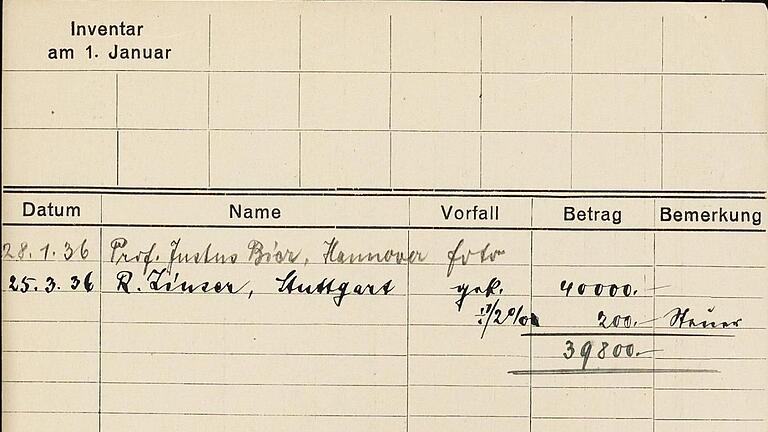 Inventar
am 1. Januar
Datum Name Vorfall Betrag Bemerkung
28.1.36 Prof. Justus Bier, Hannover foto
25.3.36 R. Zinser, Stuttgart gek. 40000.–
1/2% 200.– Steuer
39800.–